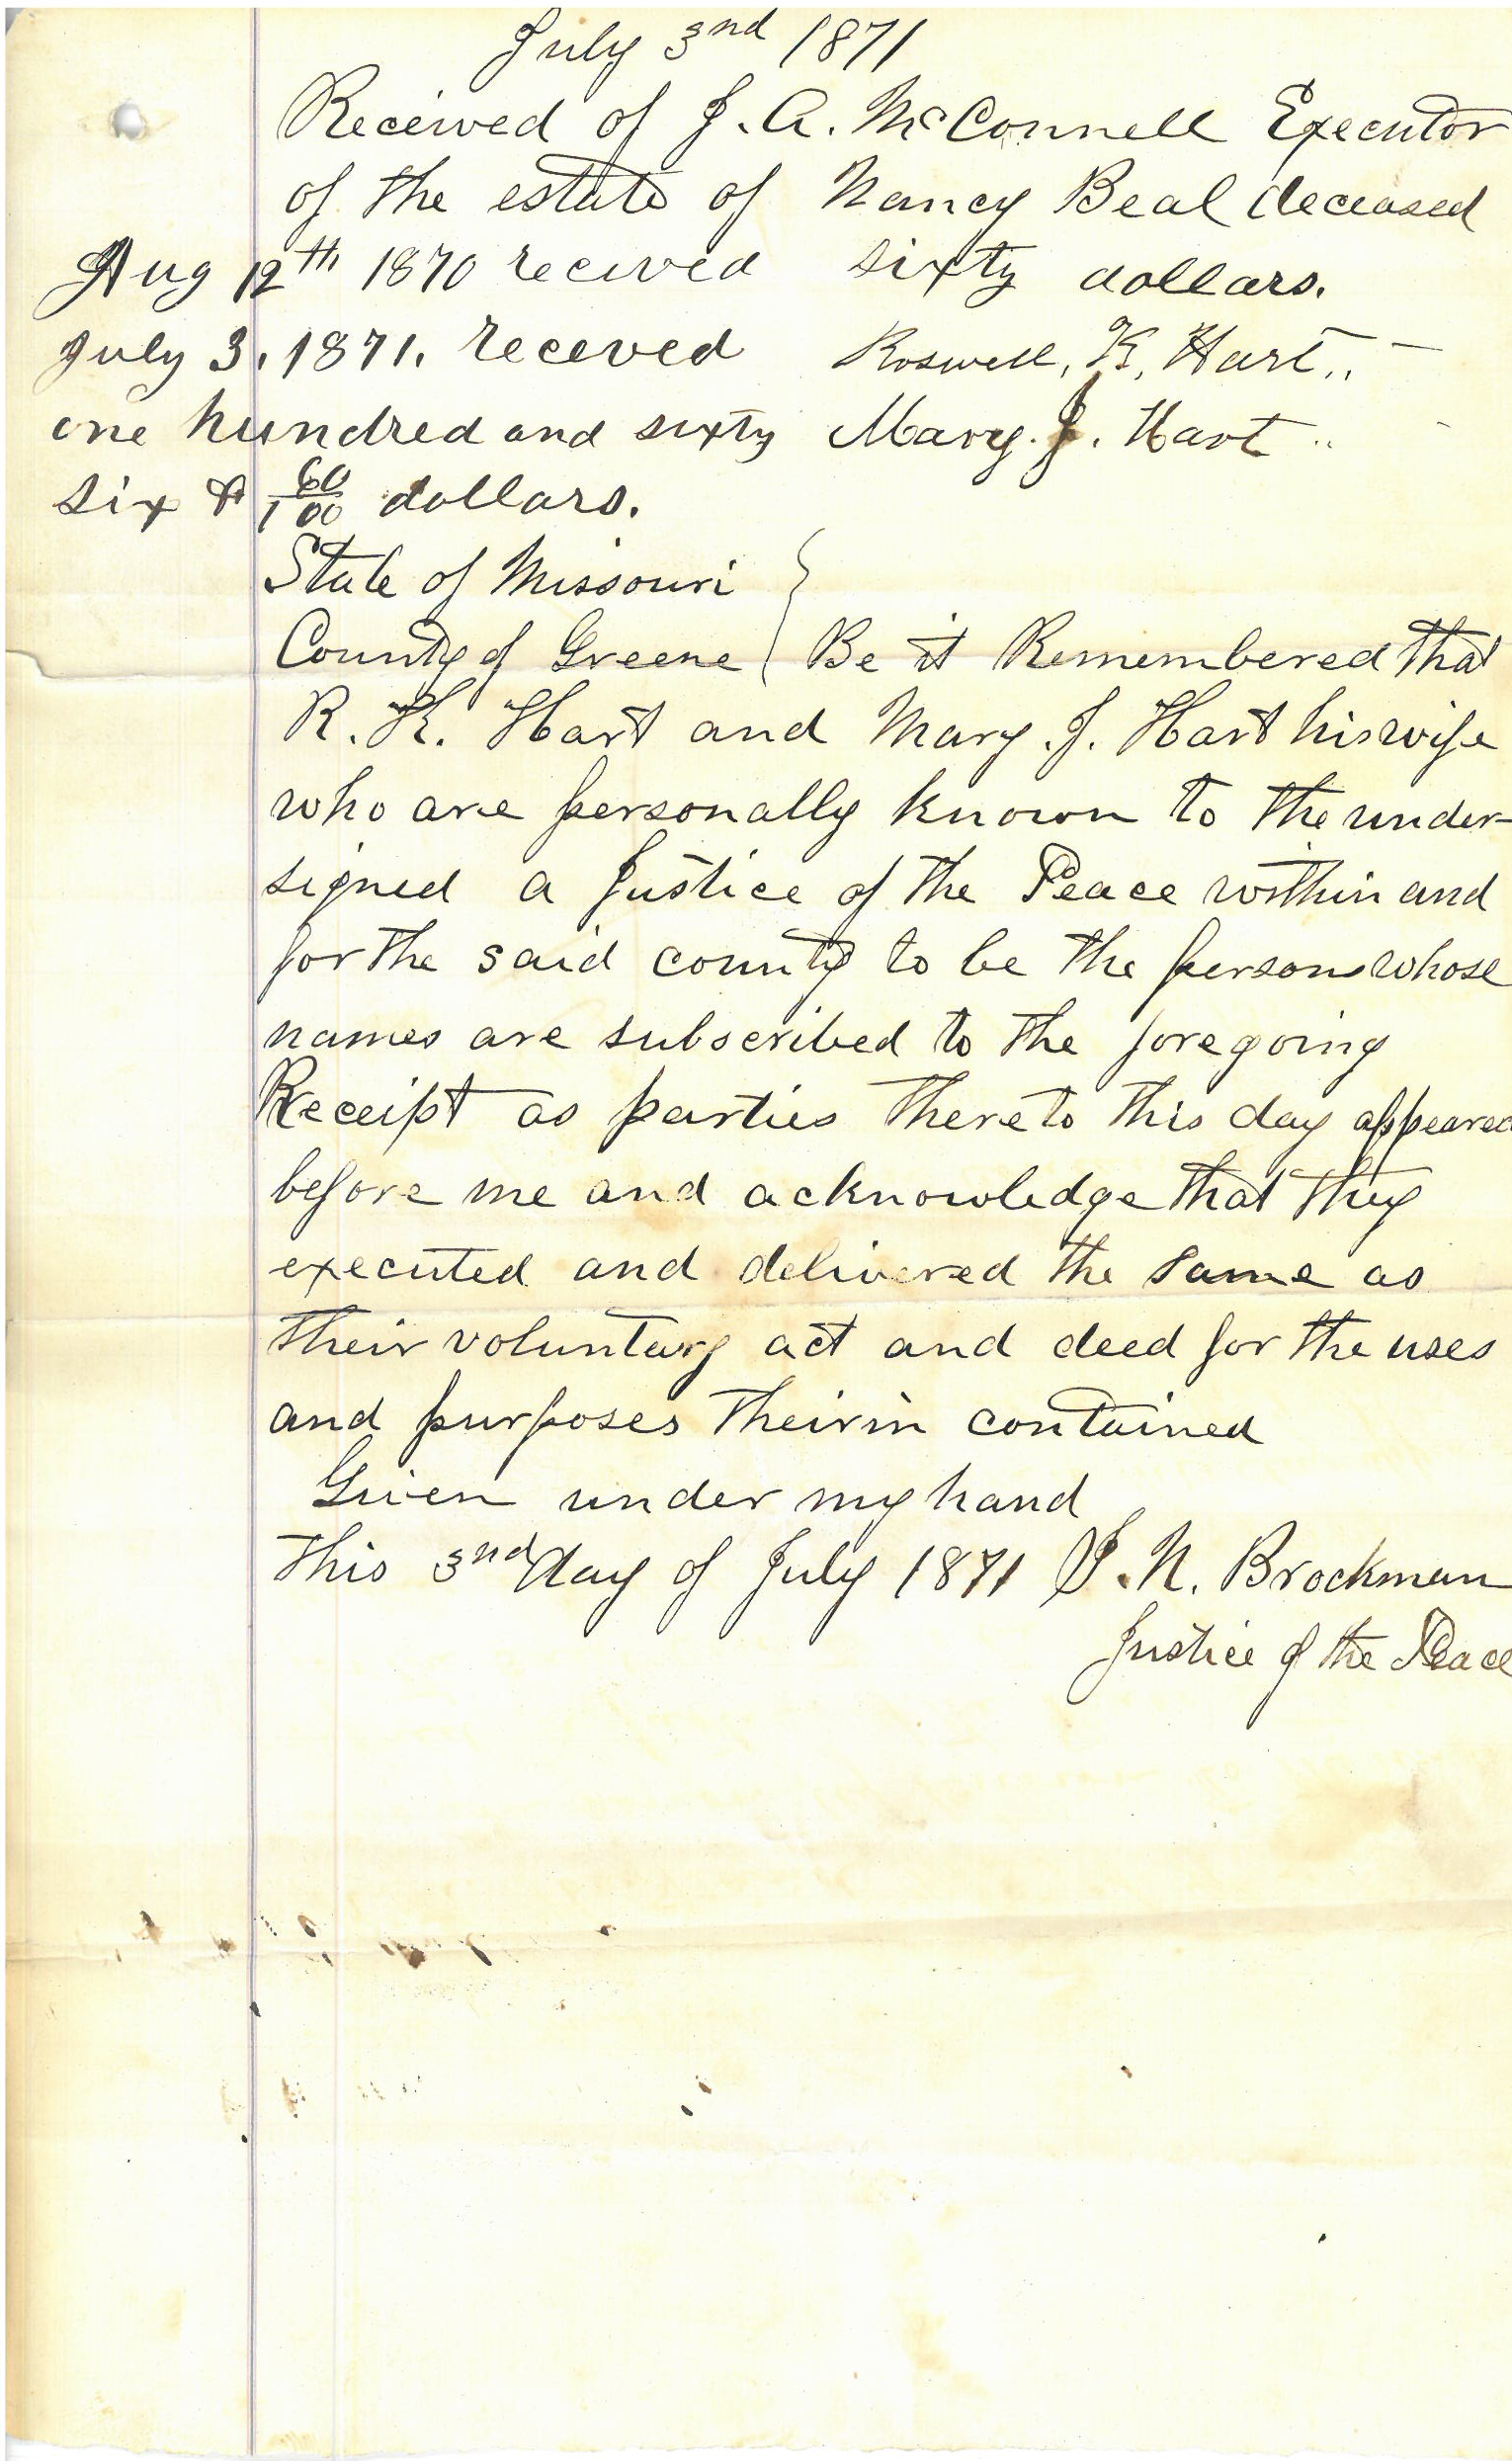 July 3nd 1871
Received of J. A. McConnell Executor
of the estate of Nancy Beal deceased
Aug 12th 1870 recived sixty dollars.
July 3. 1871. receved Roswell. K. Hart..
one hundred and sixty Mary. J. Hart ..
six & 60/100 dollars.
State of Missouri
County of Greene } Be it Remembered that
R. K. Hart and Mary. J. Hart his wife
who are personally known to the under-
signed a Justice of the Peace within and
for the said county to be the persons whose
names are subscribed to the foregoing
Receipt as parties thereto this day appeared
before me and acknowledge that they
executed and delivered the same as
their voluntary act and deed for the uses
and purposes theirin contained
Given under my hand
this 3nd day of July 1871 J. N. Brockman
Justice of the Peace